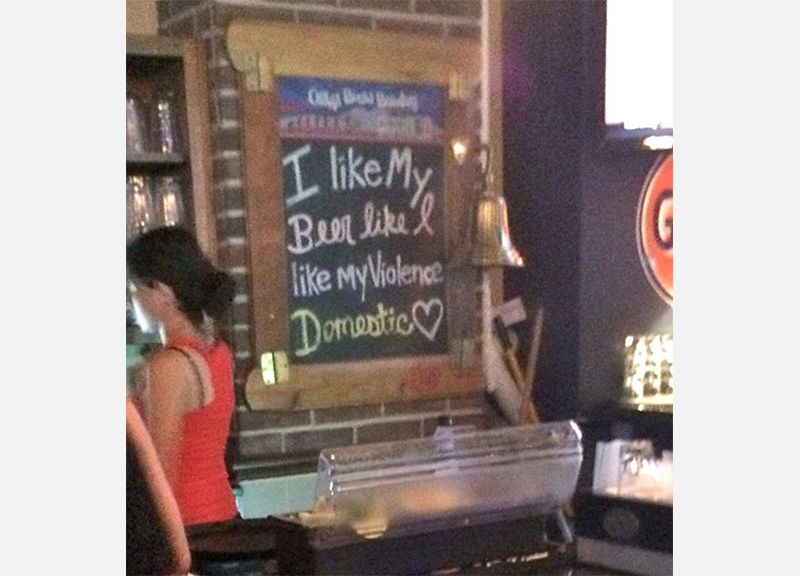 I like My
Beer like I
like My Violence
Domestic♡
G